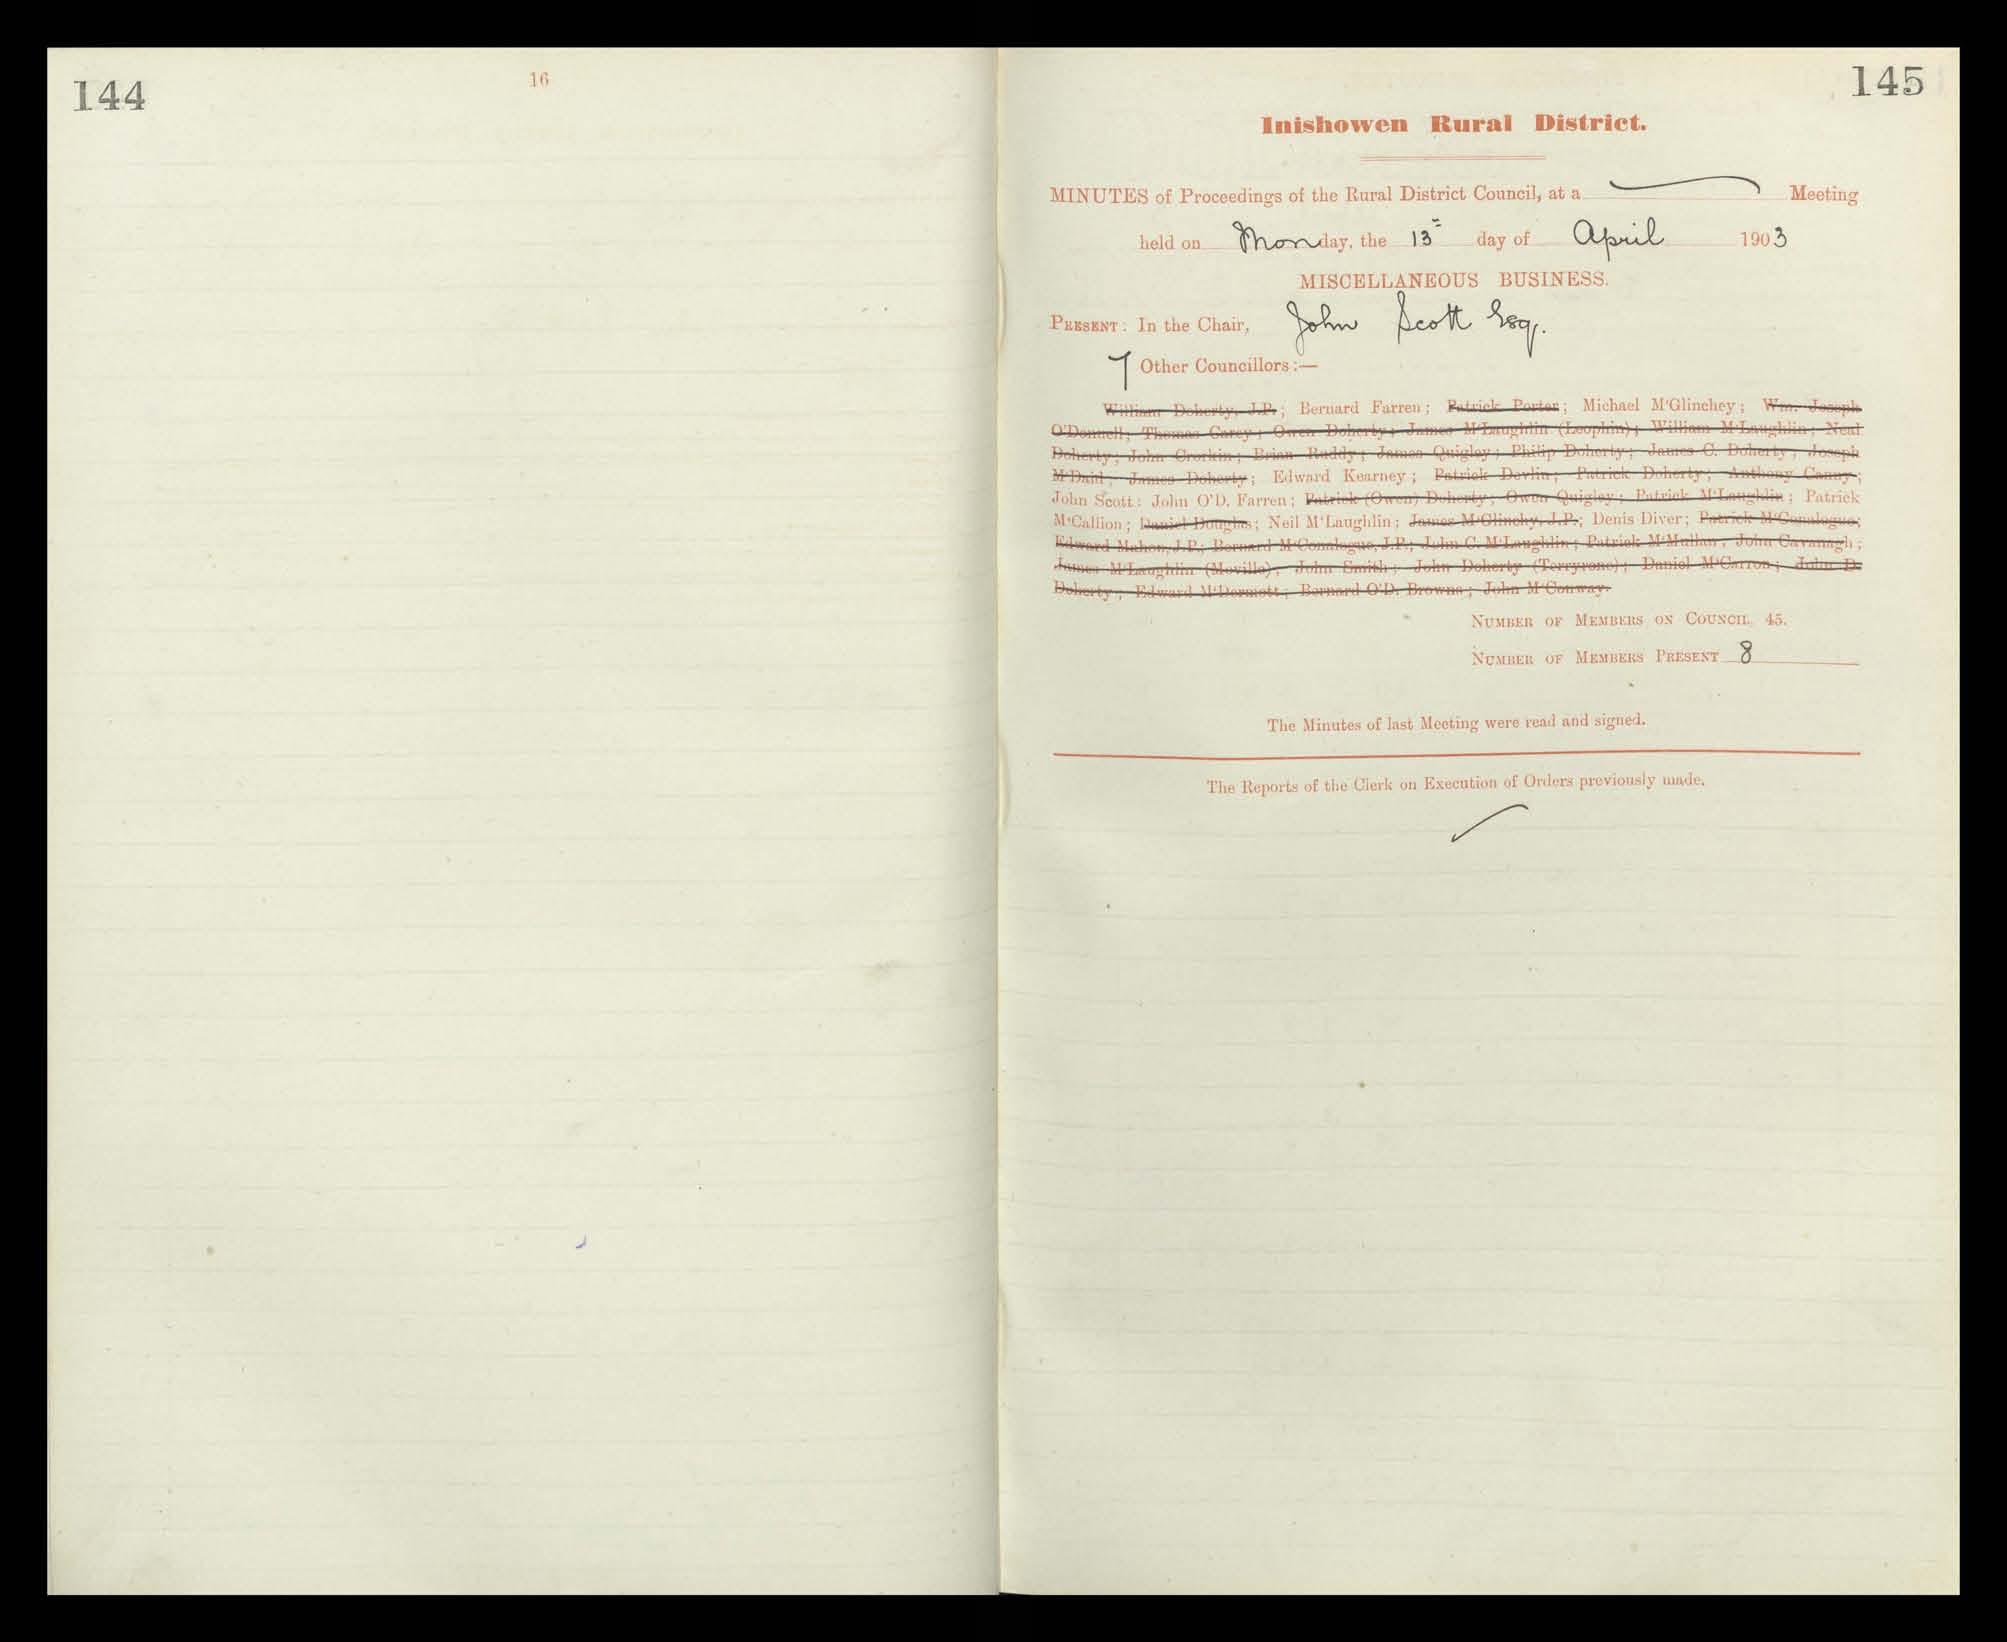 144
16
145
Inishowen Rural District.
MINUTES of Proceedings of the Rural District Council, at a Meeting
held on Monday, the 13 day of April 1903
MISCELLANEOUS BUSINESS.
PRESENT: In the Chair, John Scott Esq.
7 Other Councillors:—
William Doherty, J.P.; Bernard Farren; Patrick Porter; Michael M'Glinchey; Wm. Joseph
O'Donnell; Thomas Carey; Owen Doherty; James M'Laughlin (Leophin); William M'Laughlin; Neal
Doherty; John Crorkin; Brian Ruddy; James Quigley; Philip Doherty; James C. Doherty; Joseph
M'Daid; James Doherty; Edward Kearney; Patrick Devlin; Patrick Doherty; Anthony Canny;
John Scott: John O'D. Farren; Patrick (Owen) Doherty; Owen Quigley; Patrick M'Laughlin; Patrick
M'Callion; Daniel Douglas; Neil M'Laughlin; James M'Glinchy, J.P.; Denis Diver; Patrick M'Conalogue;
Edward Mahon, J.P.; Bernard M'Conalogue, J.P.; John C. M'Laughlin; Patrick M'Mullan; John Cavanagh;
James M'Laughlin (Moville); John Smith; John Doherty (Terryrone); Daniel M'Carron; John D.
Doherty; Edward M'Dermott; Bernard O'D. Browne; John M'Conway.
NUMBER OF MEMBERS ON COUNCIL 45.
NUMBER OF MEMBERS PRESENT 8
The Minutes of last Meeting were read and signed.
The Reports of the Clerk on Execution of Orders previously made.